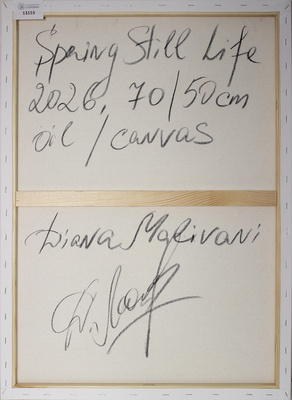 "Spring Still Life
2026, 70/50cm
oil / canvas
Diana Malivani